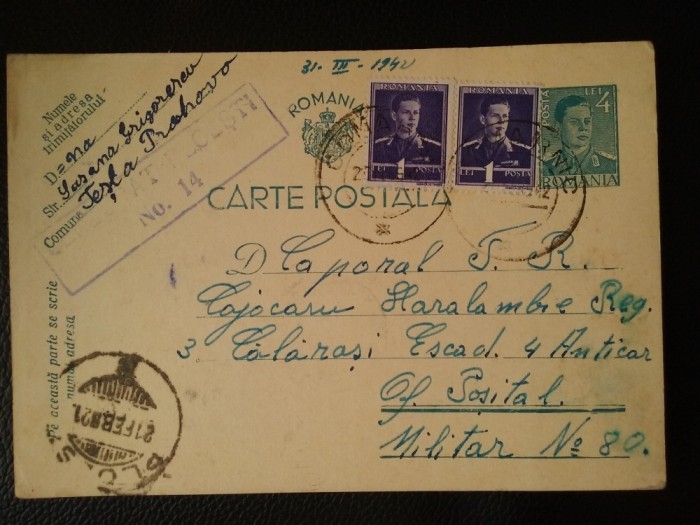 31-III-1942
Numele
și adresa
trimițătorului
D=na
Susana Grigorescu
Str.
Comuna
Teșla Prahova
No. 14
ROMANIA
CARTE POSTALA
ROMANIA
1
LEI POSTA
ROMANIA
1
LEI POSTA
POSTA LEI 4
ROMANIA
D Caporal T. R.
Cojocaru Haralambie Reg.
3 Călărași Escad. 4 Anticar
Of. Poșital.
Militar No 80.
Pe această parte se scrie
numai adresa
21 FEB